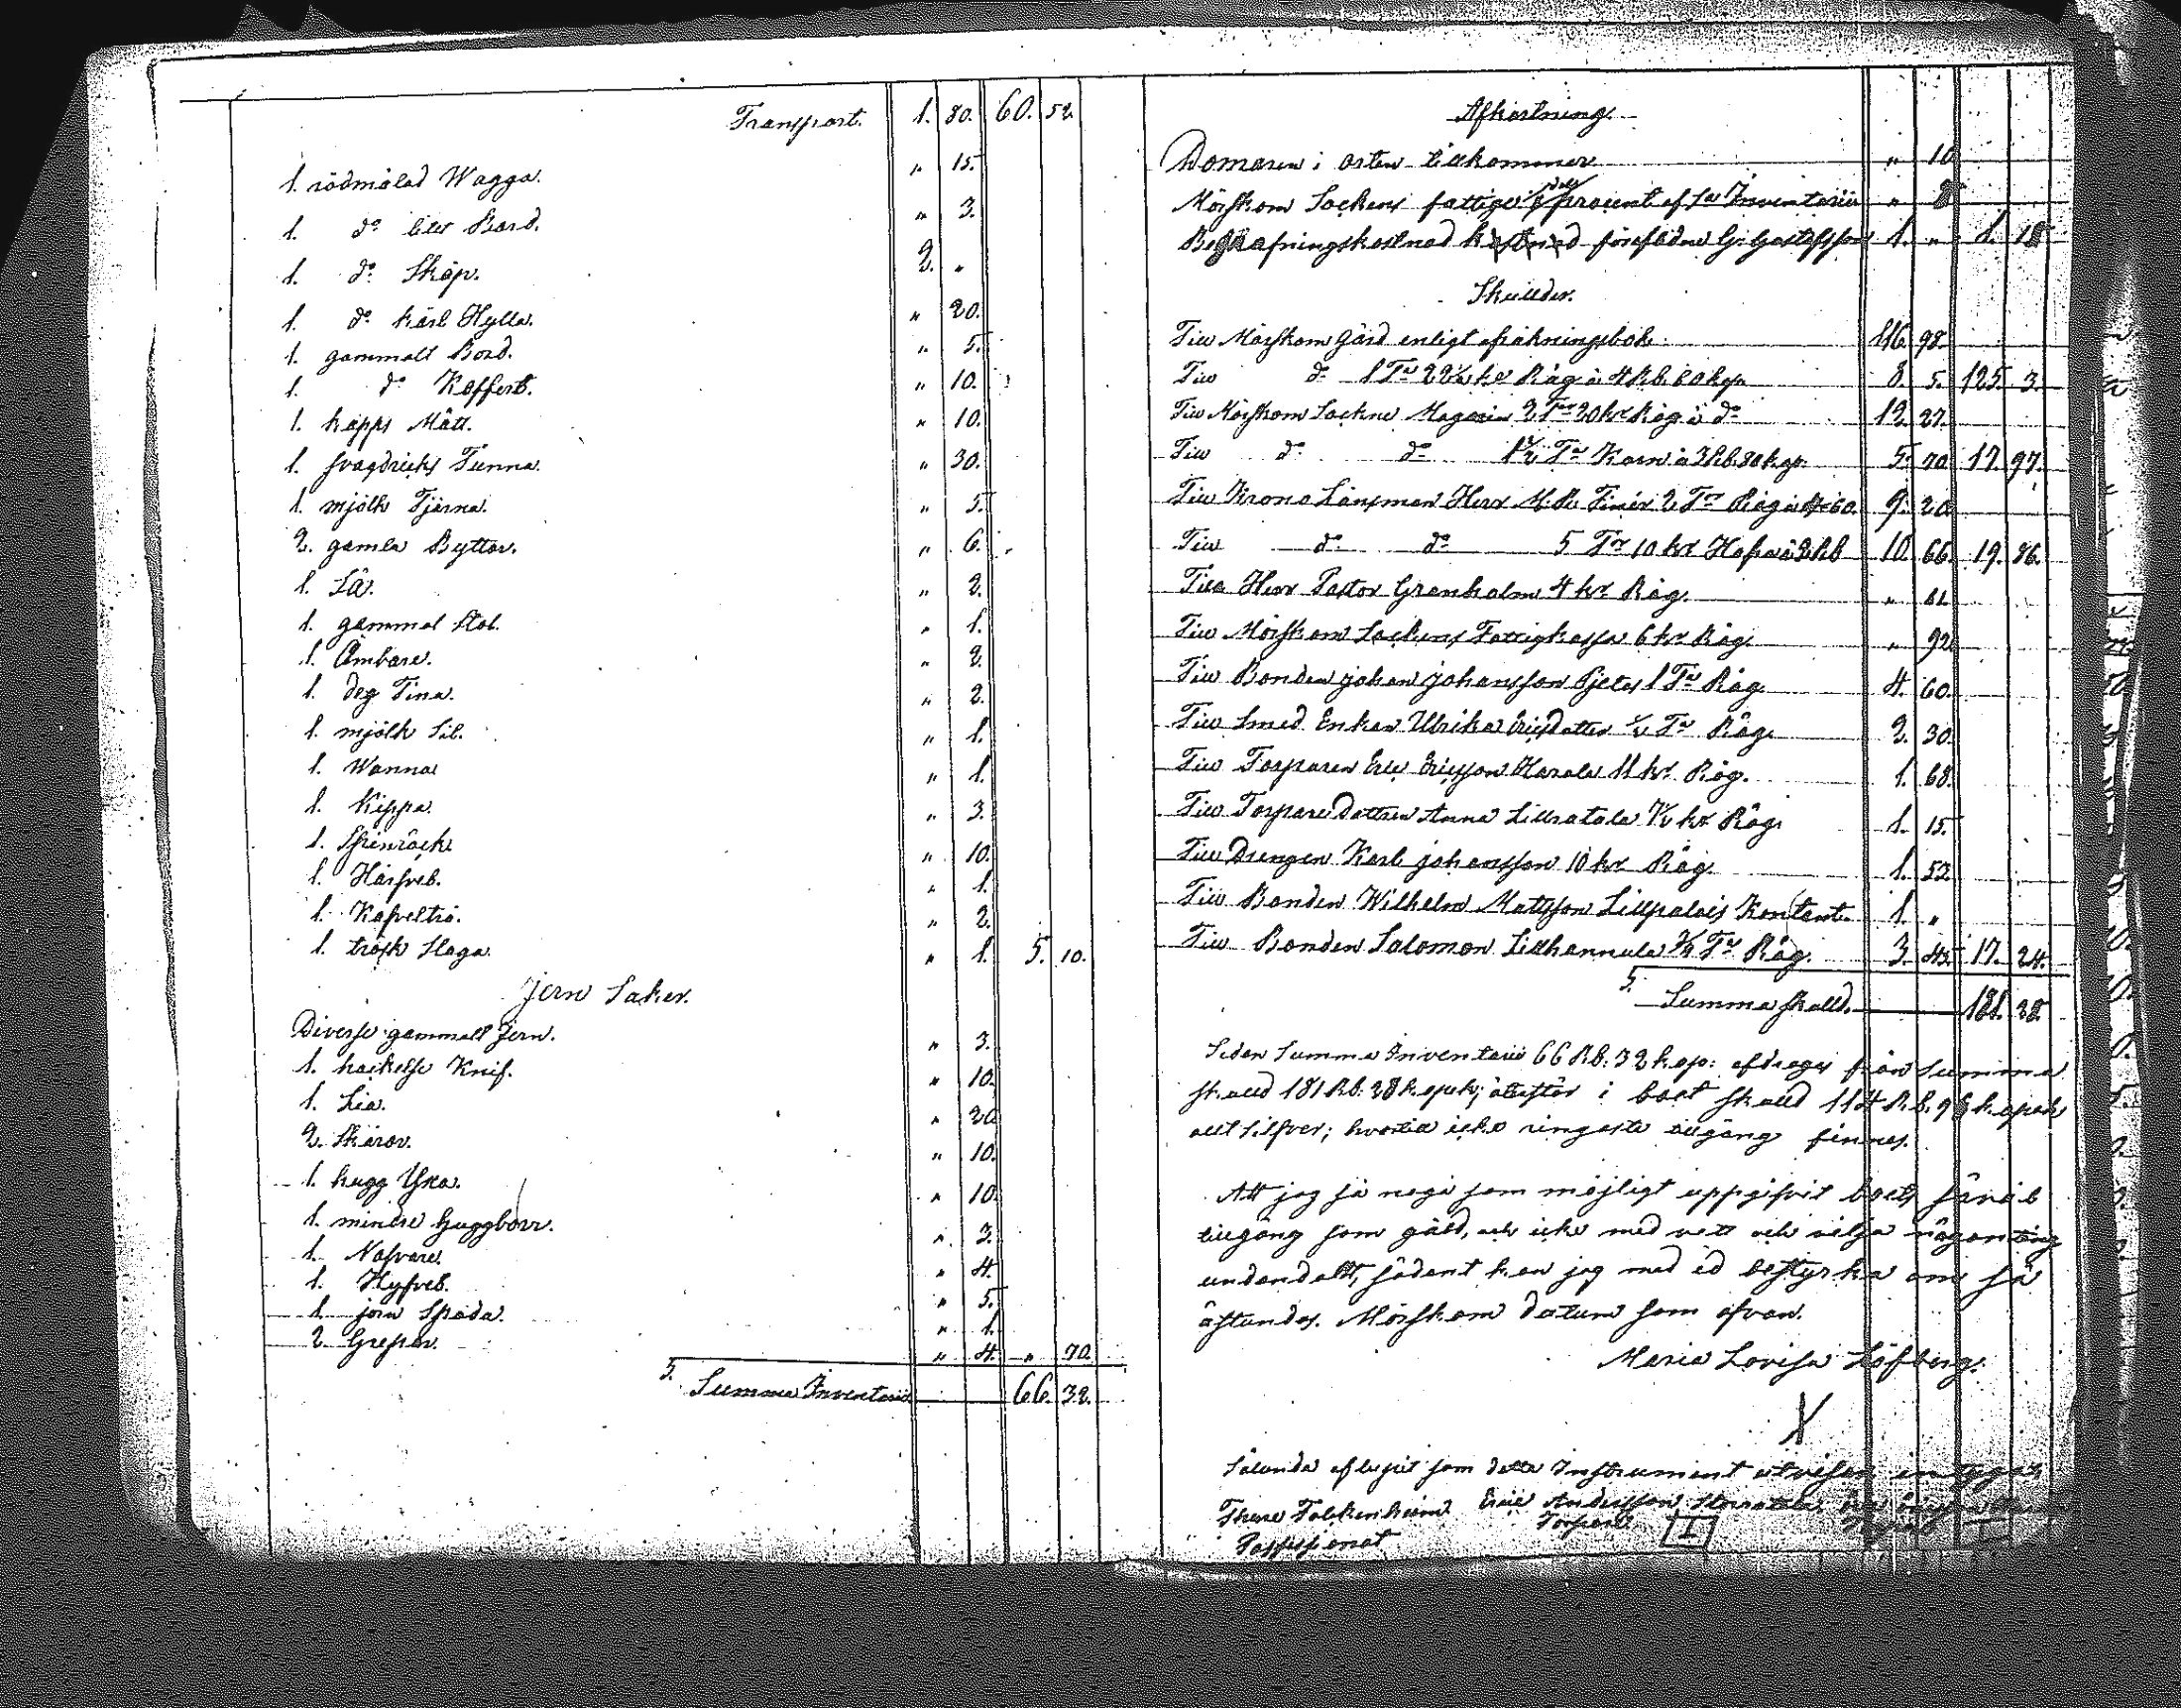 Transport. 1. 80. 60. 52.
1. rödmålad Wagga. " 15.
1. do litet Bord. " 3.
1. do Skåp. 2. "
1. do kärl Hylla. " 20.
1. gammalt Bord. " 5.
1. do Koffert. " 10.
1. kapps Mått. " 10.
1. svagdricks Tunna. " 30.
1. mjölk Tjärna. " 5.
2. gamla Byttor. " 6.
1. Så. " 2.
1. gammal Stol. " 1.
1. Ämbare. " 2.
1. deg Tina. " 2.
1. mjölk Sil. " 1.
1. Wanna " 1.
1. Kippa. " 3.
1. Spinråck " 10.
1. Härfvel. " 1.
1. Kafveltrå. " 2.
1. trösk Slaga. " 1. 5. 10.
Jern Saker.
Diverse gammalt Jern. " 3.
1. hackelse Knif. " 10.
1. Lia. " 20
2. Skäror. " 10.
1. hugg Yxa. " 10.
1. mindre huggborr. " 3.
1. Nafvare. " 4.
1. Hyfvel. " 5.
1. jern Spada. " 1.
2. Grepar. " 4. " 70.
S. Summa Inventarii 66. 32.
Afkortning.
Domaren i orten tillkommer " 10
Mörskom Sockens fattige 1/8 dels procent af Sa Inventarii " 8
Begrafningskostnad för aflidne G: Gustafsson 1. " 1. 18
Skullder.
Till Mörskom Gård enligt afräkningsbok 116. 98.
Till do 1 Ta 22 1/2 kr Råg à 4 Rb. 60 kop 8. 5. 125. 3.
Till Mörskom Sockne Magasin 2 Tnr 20 kr Råg à do 12. 27.
Till do do 1 1/2 Ta Korn à 3 Rb. 80 kop. 5. 70. 17. 97.
Till Krono Länsman Herr 2 Tnr Råg à 4,60. 9. 20.
Till do do 5 Tnr 10 kr Hafra à 2 Rb 10. 66. 19. 86.
Till Herr Pastor Granholm 4 kr Råg. " 61.
Till Mörskom Sockens Fattigkassa 6 kr Råg. " 92.
Till Bonden Johan Johansson Pjetes 1 Ta Råg 4. 60.
Till Smed Enkan Ulrika Ericsdotter 1/2 Ta Råg. 2. 30.
Till Torparen Eric Ericsson Harala 11 kr Råg. 1. 68.
Till Torpare Dottren Anna Lillratala 7 1/2 kr Råg. 1. 15.
Till Drengen Karl Johansson 10 kr Råg. 1. 52.
Till Bonden Wilhelm Mattsson Lillpalais Kontant. 1. "
Till Bonden Salomon Lillhannula 3/4 Ta Råg. 3. 45. 17. 24.
S. Summa skulld. 181. 28.
Sedan Summa Inventarii 66 Rb: 32 kop: afdrages från Summa
skulld 181 Rb. 28 kopek; återstår i boet skulld 114 Rb. 96 kopek
allt silfver; hvartill icke ringaste tillgång finnes.
Att jag så noga som möjligt uppgifvit boets såväl
tillgång som gäld, och icke med vett och vilja någonting
undandolt, sådant kan jag med ed bestyrka om så
åstundes. Mörskom datum som ofvan.
Maria Lovisa Löfberg.
X
Sålunda aflupit som detta Instrument utvisar intygar
Falckenheim Eric Andersson
Possessionat Torpare
I